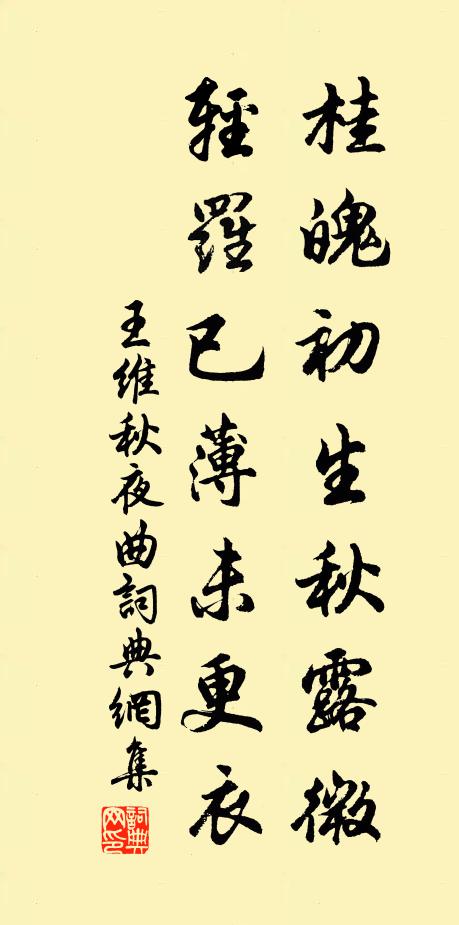 桂魄初生秋露微
輕羅已薄未更衣
王維秋夜曲詞典網集
詞典網印